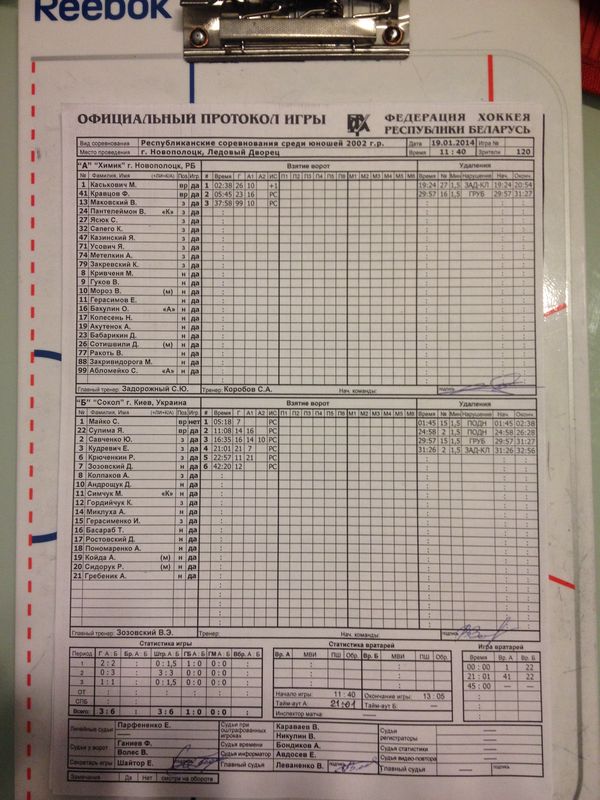 Reebok
ОФИЦИАЛЬНЫЙ ПРОТОКОЛ ИГРЫ
ФЕДЕРАЦИЯ ХОККЕЯ
РЕСПУБЛИКИ БЕЛАРУСЬ
Вид соревнования Республиканские соревнования среди юношей 2002 г.р. Дата 19.01.2014 Игра №
Место проведения г. Новополоцк, Ледовый Дворец Время 11 : 40 Зрители 120
"А" "Химик" г. Новополоцк, РБ Взятие ворот Удаления
№ Фамилия, Имя («Л»«К»/А) Поз Игр # Время Г А1 А2 ИС П1 П2 П3 П4 П5 П6 М1 М2 М3 М4 М5 М6 Время № Мин Нарушение Нач. Оконч.
1 Каськович М. вр да 1 02:38 26 10 +1 19:24 27 1,5 ЗАД-КЛ 19:24 20:54
41 Кравцов Ф. вр да 2 05:45 23 16 РС 29:57 16 1,5 ГРУБ 29:57 31:27
13 Маковский В. з да 3 37:58 99 10 РС
24 Пантелеймон В. «К» з да
27 Ясюк С. з да
32 Сапего К. з да
47 Казинский Я. з да
71 Усович Я. з да
74 Метелкин А. з да
79 Закревский К. з да
8 Кривченя М. н да
9 Гуков В. н да
10 Мороз В. (м) н да
11 Герасимов Е. н да
16 Бакулин О. «А» н да
17 Колесень Н. н да
19 Акутенок А. н да
23 Бабарикин Д. н да
26 Сотишвили Д. (м) н да
77 Ракоть В. н да
88 Закривидорога М. н да
99 Абломейко С. «А» н да
Главный тренер Задорожный С.Ю. Тренер Коробов С.А. Нач. команды: подпись
"Б" "Сокол" г. Киев, Украина Взятие ворот Удаления
№ Фамилия, Имя («Л»«К»/А) Поз Игр # Время Г А1 А2 ИС П1 П2 П3 П4 П5 П6 М1 М2 М3 М4 М5 М6 Время № Мин Нарушение Нач. Оконч.
1 Майко С. вр нет 1 05:18 7 РС 01:45 15 1,5 ПОДН 01:45 02:38
22 Сулима Я. вр да 2 11:08 14 16 РС 24:58 2 1,5 ПОДН 24:58 26:28
2 Савченко Ю. з да 3 16:35 16 14 10 РС 29:57 15 1,5 ГРУБ 29:57 31:27
3 Кудревич Е. з да 4 21:01 21 7 РС 31:26 2 1,5 ЗАД-КЛ 31:26 32:56
6 Крюченкин Р. з да 5 22:57 11 21 РС
7 Зозовский Д. н да 6 42:20 12 РС
8 Колпаков А. з да
10 Андрощук Д. н да
11 Симчук М. «К» н да
12 Гордийчук К. з да
14 Миклуха А. н да
15 Герасименко И. з да
16 Басараб Т. н да
17 Ростовский Д. н да
18 Пономаренко А. н да
19 Койда А. (м) н да
20 Сидорук Р. (м) н да
21 Гребеник А. н да
Главный тренер: Зозовский В.Э. Тренер: Нач. команды: подпись
Статистика игры Статистика вратарей Игра вратарей
Период Г А : Б Бр. А : Б Штр. А : Б ГБ А : Б ГМ А : Б Вбр. А : Б Вр. А МВИ ПШ Обр. Вр. Б МВИ ПШ Обр. Время Вр. А Вр. Б
1 2 : 2 : 0 : 1,5 1 : 0 0 : 0 : 00 : 00 1 22
2 0 : 3 : 3 : 3 0 : 0 0 : 0 : 21 : 01 41 22
3 1 : 1 : 0 : 1,5 0 : 0 0 : 0 : 45 : 00 —
ОТ
СПБ
Всего: 3 : 6 : 3 : 6 1 : 0 0 : 0
Начало игры: 11 : 40 Окончание игры: 13 : 05
Тайм-аут А: 21:01 Тайм-аут Б: —
Инспектор матча: —
Линейные судьи Парфененко Е. Судьи при оштрафованных игроках Караваев В. Судьи регистраторы —
Никулин В. —
Судьи у ворот Ганиев Ф. Судьи времени Бондиков А. Судья статистики —
Волес В. Судья информатор Авдосев Е. Судья видео-повтора —
Секретарь игры Шайтор Е. Главный судья Леваненко В. подпись Главный судья — подпись
Замечания Да Нет смотри на обороте